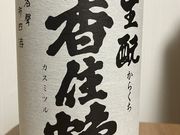 生酛
からくち
香住鶴
カスミツル